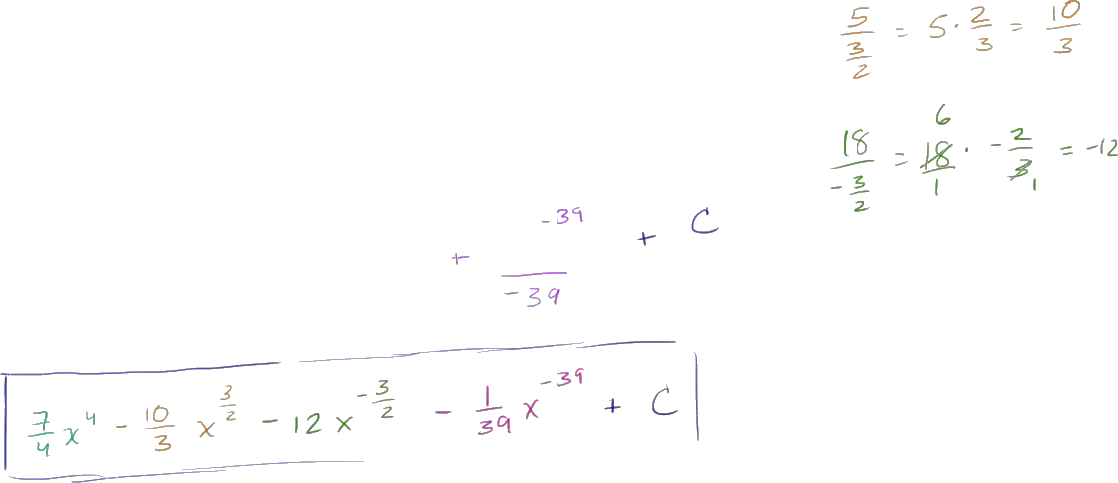 5/(3/2) = 5 · 2/3 = 10/3
18/(-3/2) = 18/1 · -2/3 = -12
6 1
+ ^{-39}/-39 + C
7/4 x^4 - 10/3 x^{3/2} - 12x^{-3/2} - 1/39 x^{-39} + C